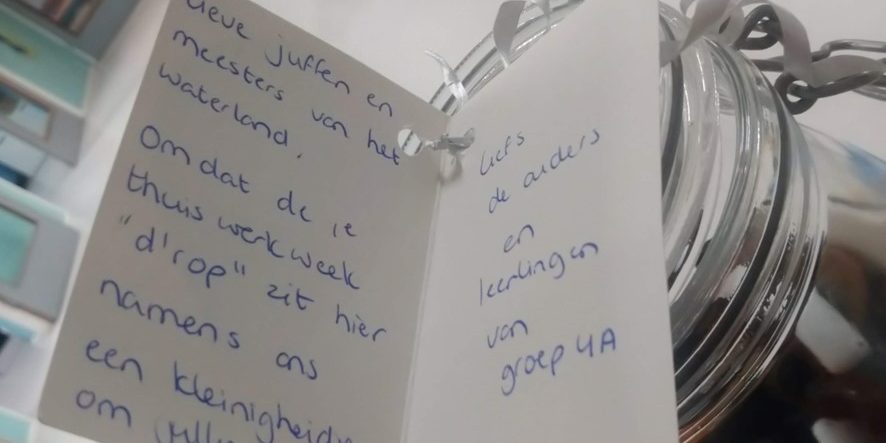 Lieve juffen en
meesters van het
waterland.
Omdat de 1e
thuiswerkweek
"d'rop" zit hier
namens ons
een
om
liefs
de ouders
en
leerlingen
van
groep 4A